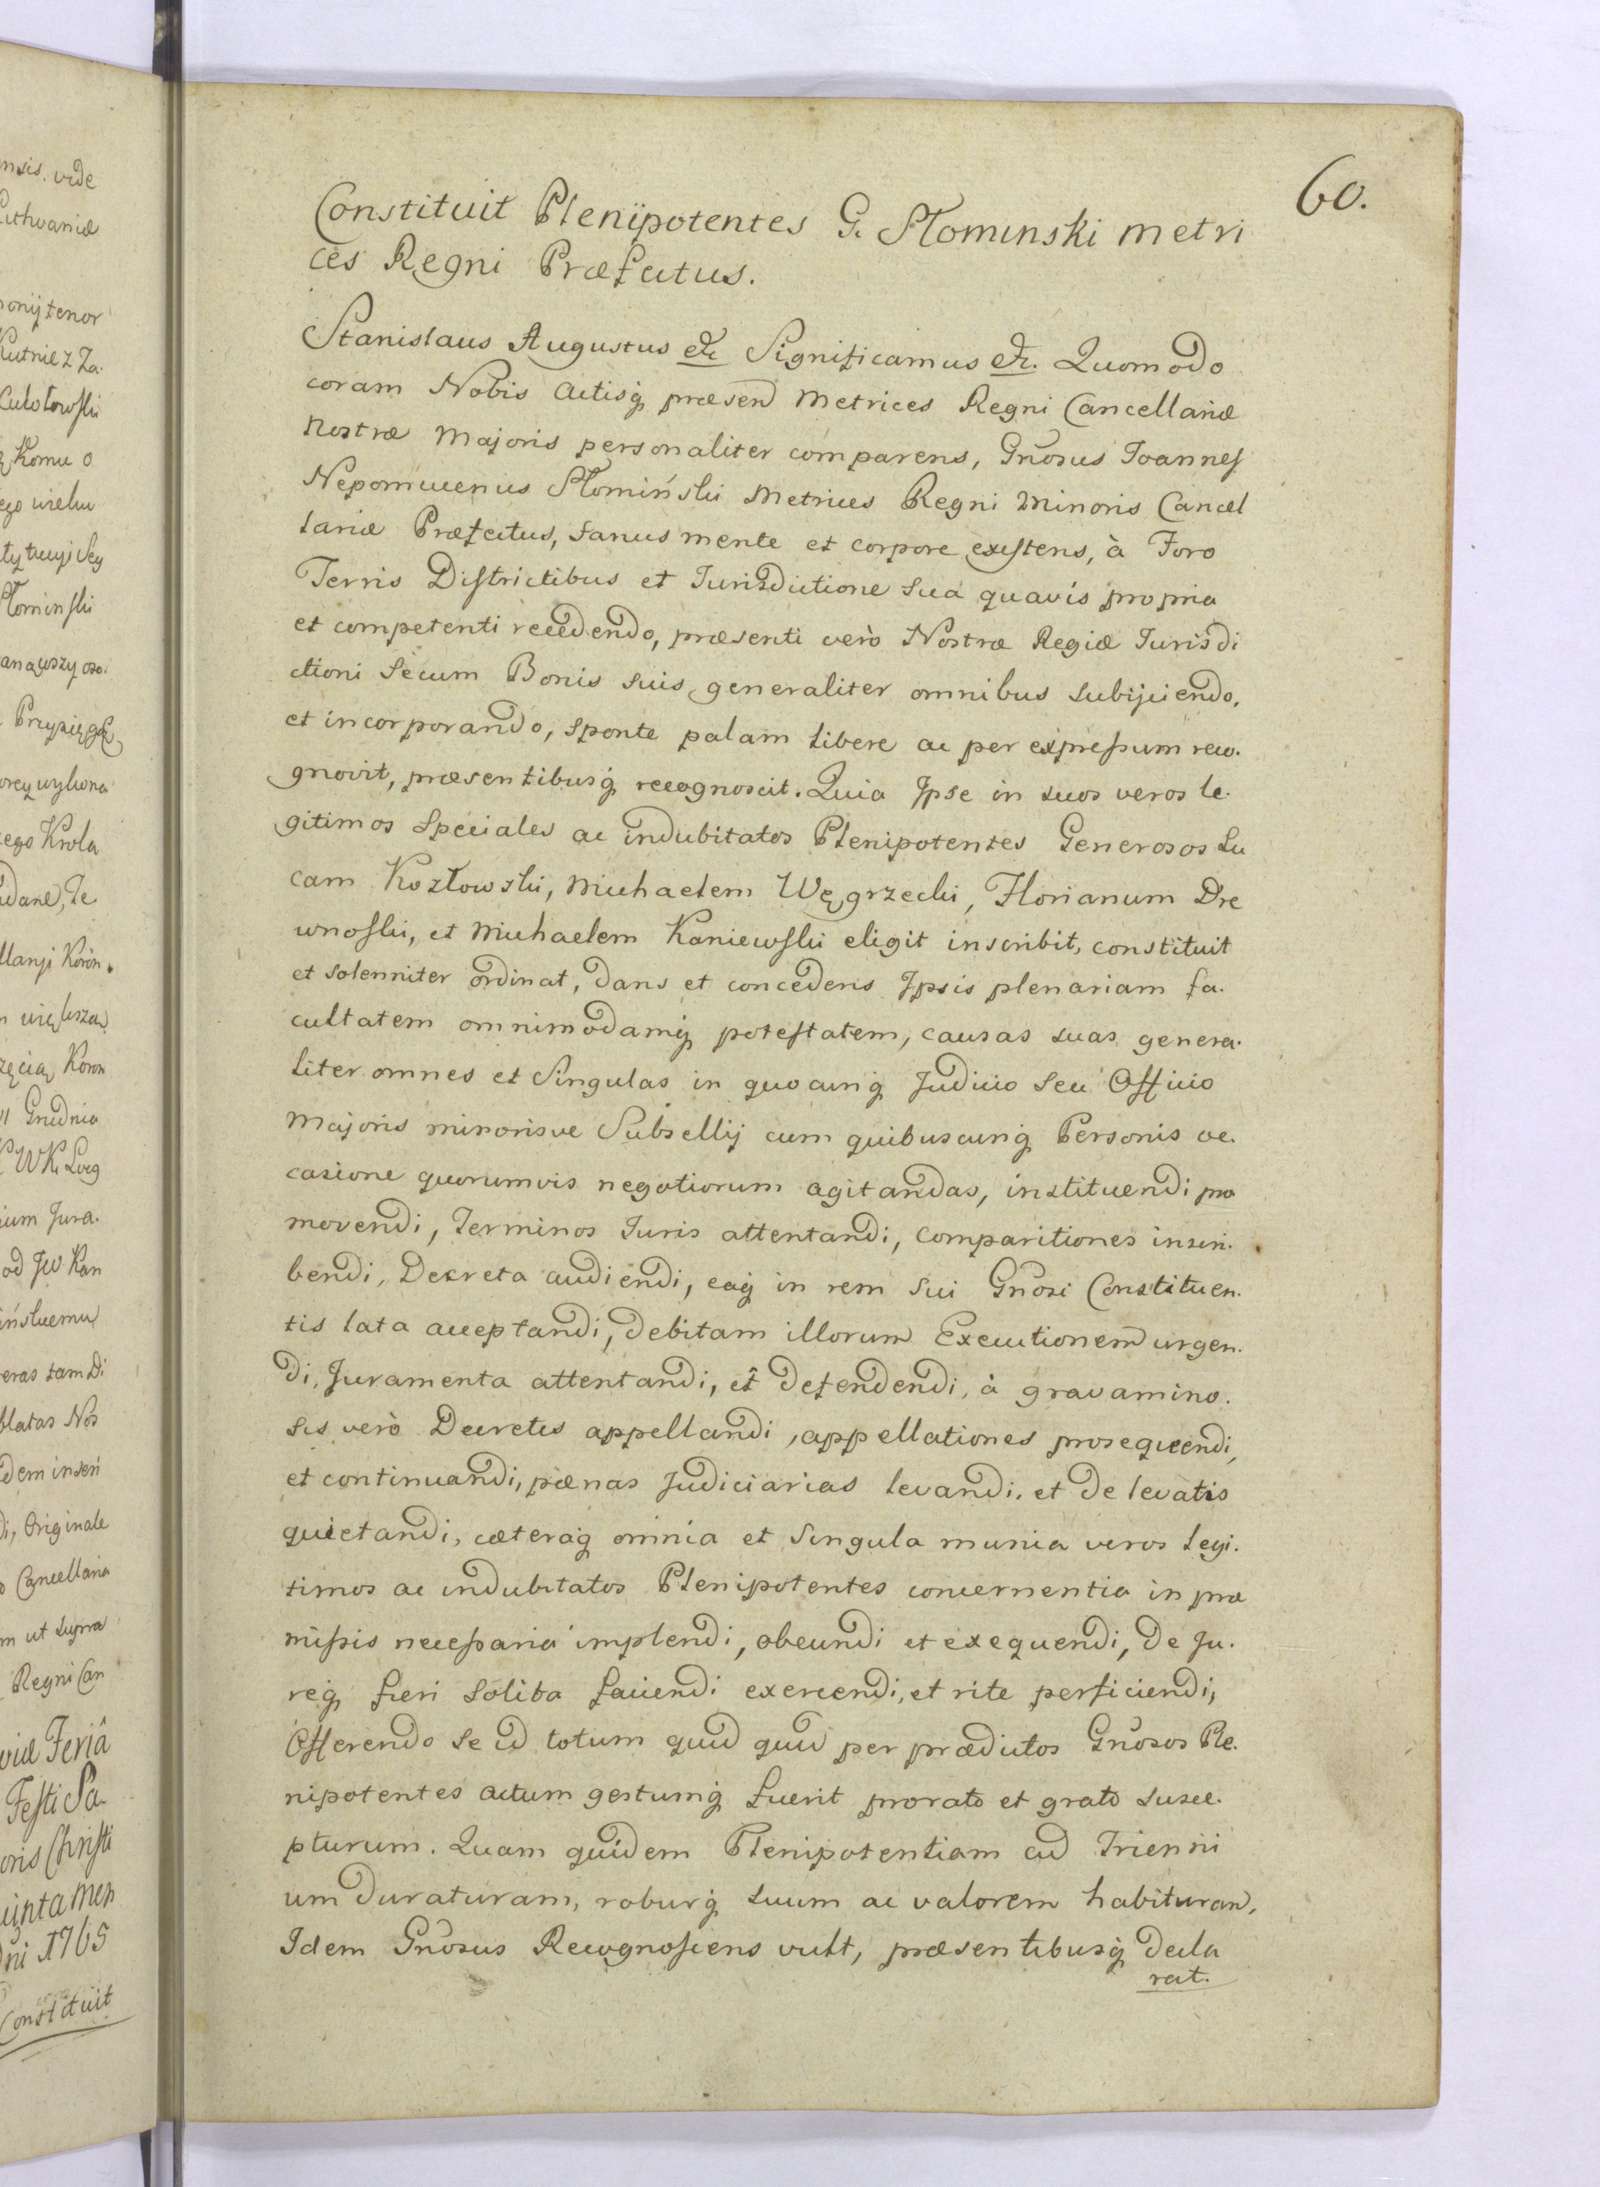 60.
Constituit Plenipotentes G. Słominski metri
ces Regni Præfectus.
Stanislaus Augustus etc Significamus etc. Quomodo
coram Nobis Actisq præsen Metrices Regni Cancellariæ
Nostræ Majoris personaliter comparens, Gnosus Joannes
Nepomucenus Słomiński Metrices Regni Minoris Cancel
lariæ Præfectus, sanus mente et corpore existens, à Foro
Terris Districtibus et Jurisdictione sua quavis propria
et competenti recedendo, præsenti verò Nostræ Regiæ Jurisdi
ctioni secum Bonis suis generaliter omnibus subijciendo,
et incorporando, sponte palam libere ac per expressum reco.
gnovit, præsentibusq recognoscit. Quia Ipse in suos veros le.
gitimos speciales ac indubitatos Plenipotentes Generosos Lu
cam Kozłowski, Michaelem Węgrzecki, Florianum Dre
wnoski, et Michaelem Kaniewski eligit inscribit, constituit
et solenniter ordinat, dans et concedens Ipsis plenariam fa.
cultatem omnimodamq potestatem, causas suas genera.
liter omnes et Singulas in quocunq Judicio seu Officio
Majoris minorisve Subsellij cum quibuscunq Personis oc.
casione quorumvis negotiorum agitandas, instituendi pro
movendi, Terminos Juris attentandi, comparitiones inscri.
bendi, Decreta audiendi, eaq in rem sui Gnosi Constituen.
tis lata acceptandi, debitam illorum Executionem urgen.
di, Juramenta attentandi, et defendendi, à gravamino.
sis verò Decretis appellandi, appellationes prosequendi,
et continuandi, pænas Judiciarias levandi, et de levatis
quietandi, cæteraq omnia et singula munia veros legi.
timos ac indubitatos Plenipotentes concernentia in præ
missis necessaria implendi, obeundi et exequendi, de Ju.
req fieri solita faciendi exercendi, et rite perficiendi,
Offerendo se id totum quid quid per prædictos Gnosos Ple.
nipotentes actum gestumq fuerit pro rato et grato susce.
pturum. Quam quidem Plenipotentiam ad Trienni
um duraturam, roburq suum ac valorem habituram,
Idem Gnosus Recognoscens vult, præsentibusq decla
rat.